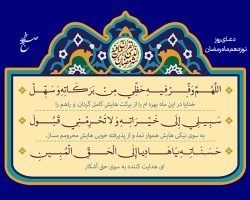 دعـای روز
نوزدهم ماه رمضان
اَللّهُمَّ وَفِّرْ فیهِ حَظّی مِنْ بَرَکاتِهِ وَسَهِّلْ
خدایا در این ماه بهره ام را از برکت هایش کامل گردان، و راهم را
سَبیلی اِلی خَیْراتِهِ وَلا تَحْرِمْنی قَبُولَ
به سوی نیکی هایش هموار نما، و از پذیرفته خوبی هایش محرومم مساز،
حَسَناتِهِ یا هادِیاً اِلَی الْحَقِّ الْمُبینِ
ای هدایت کننده به سوی حق آشکار